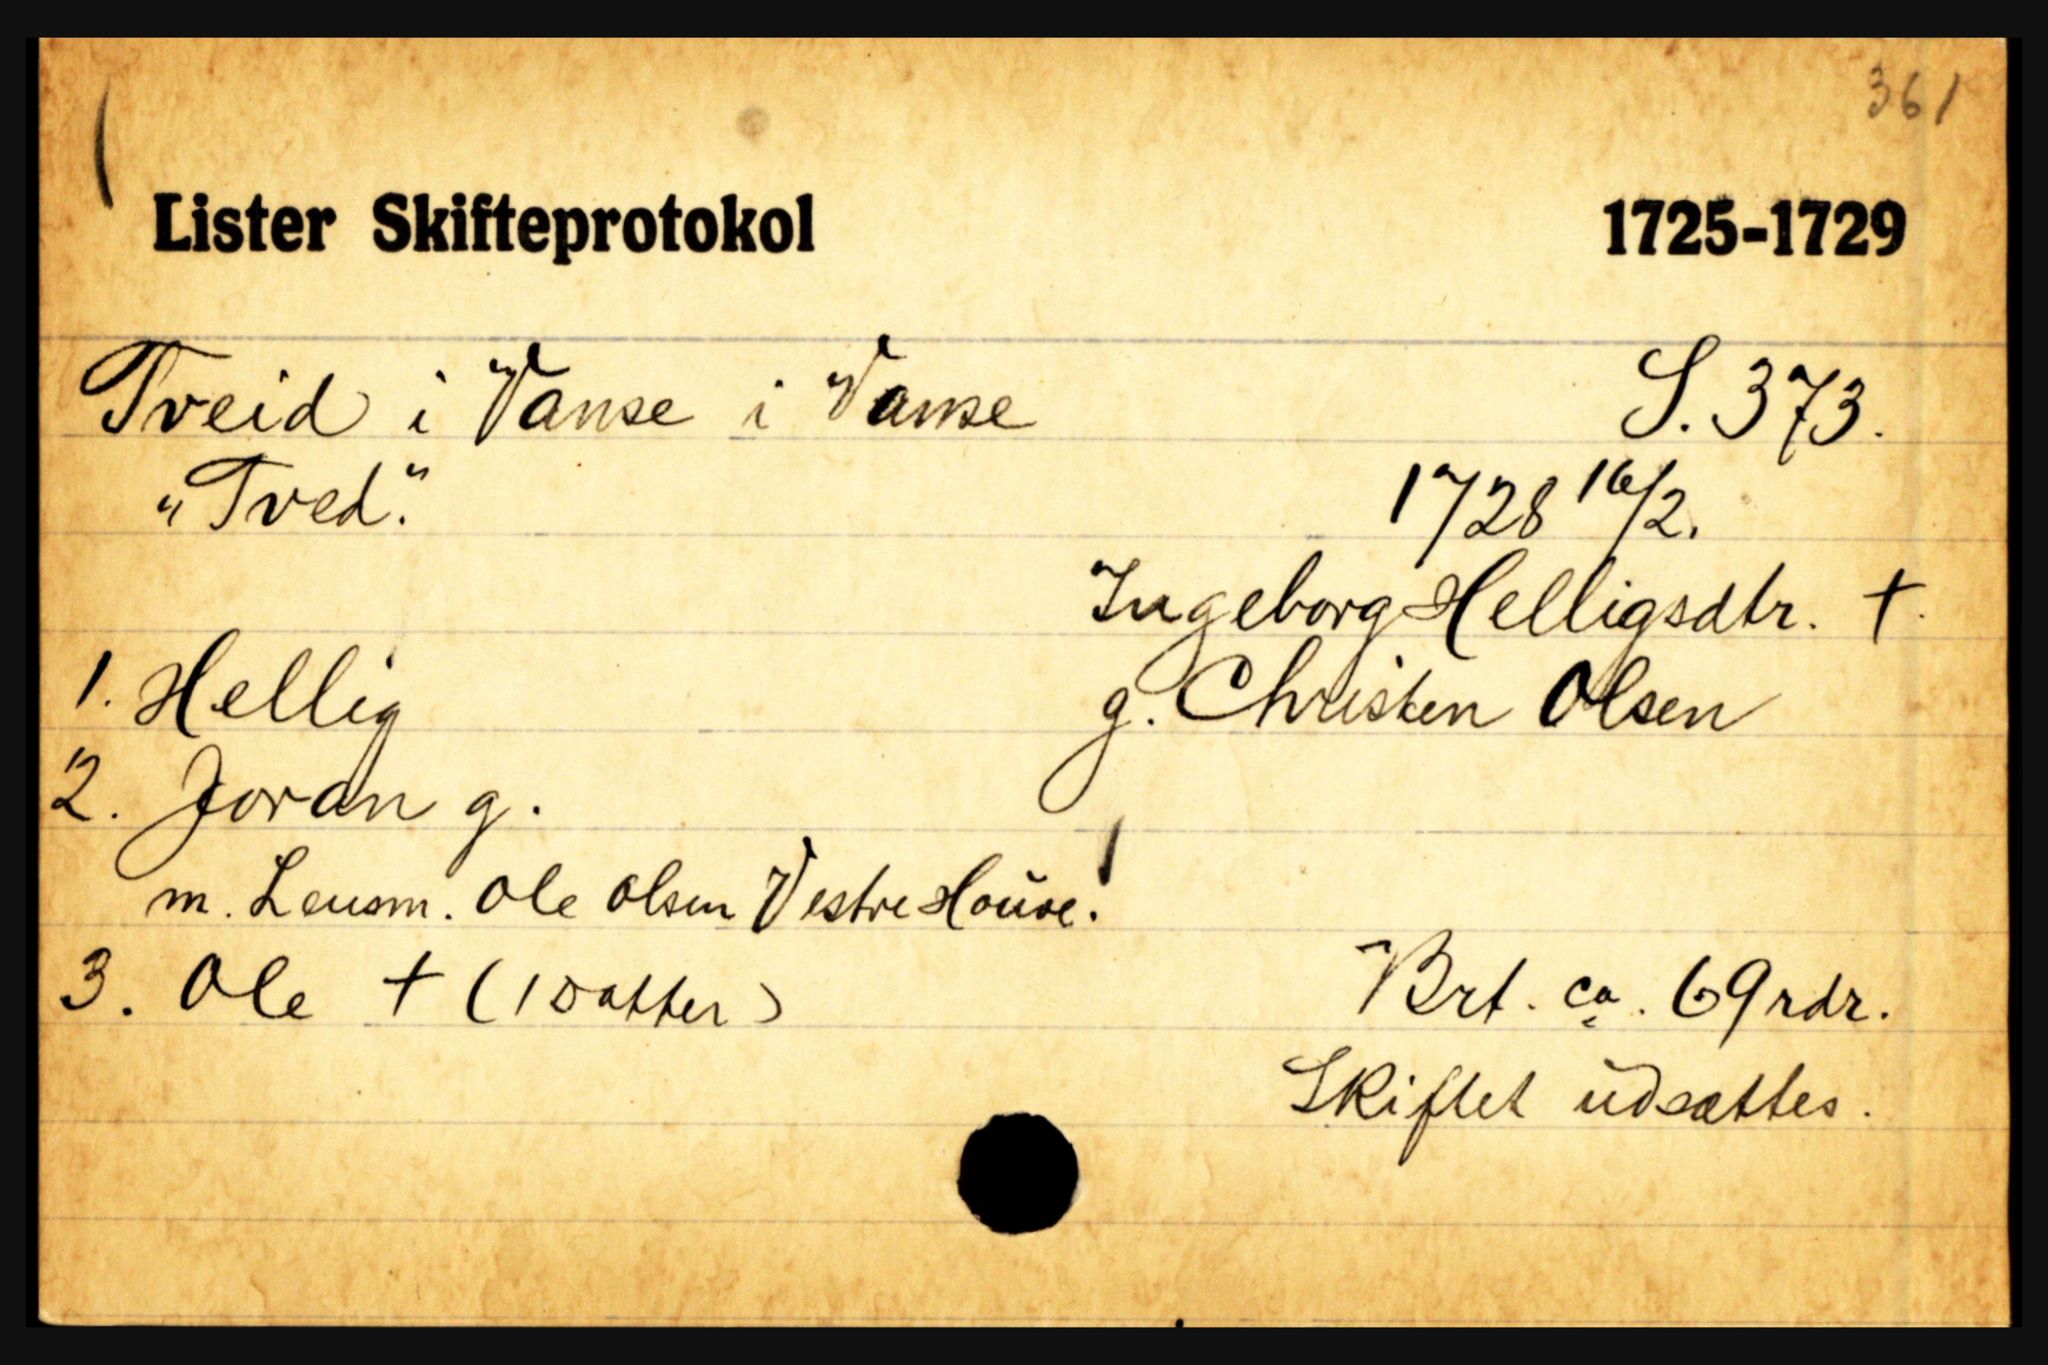 361
Lister Skifteprotokol 1725-1729
Tveid i Vanse i Vanse S. 373.
"Tved." 1728 16/2.
Ingeborg Helligsdtr. †.
1. Hellig g. Christen Olsen
2. Joran g.
m. Lensm. Ole Olsen Vestre Hauve!
3. Ole † (1 Datter) Brt. ca. 69 rdr.
Skiftet udsættes.